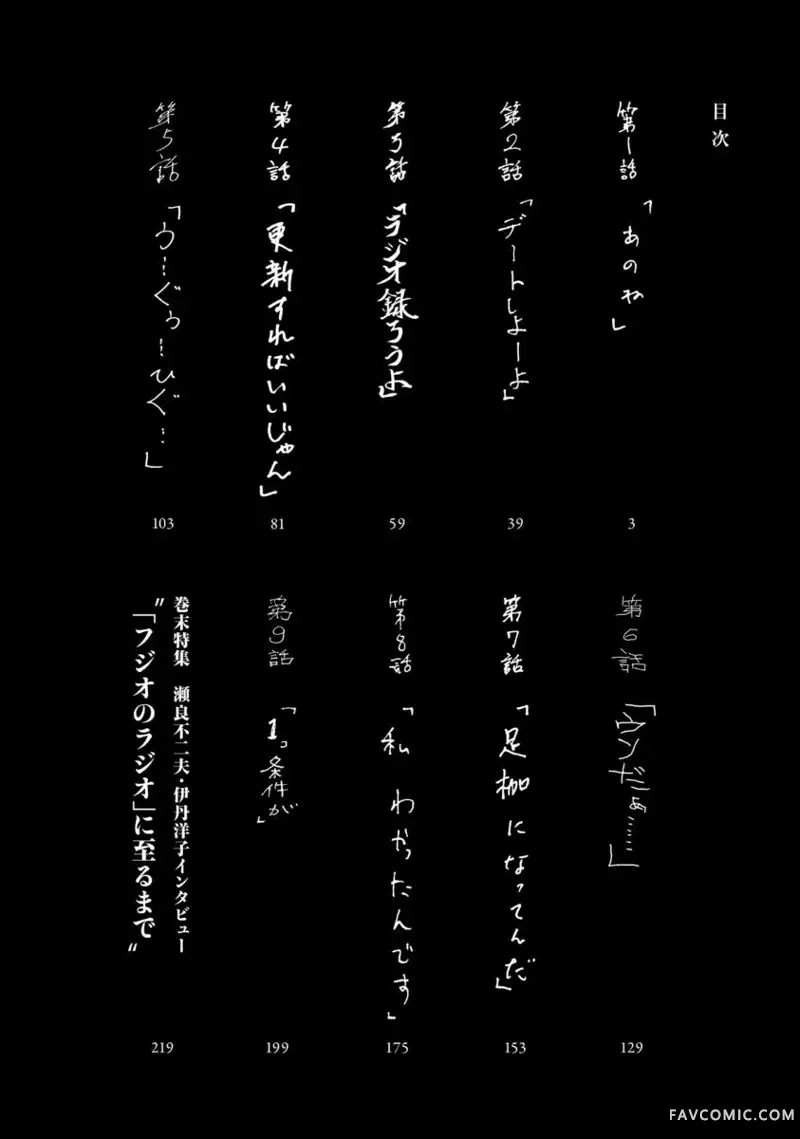 目次
第1話 「あのね」
3
第2話 「デートしよーよ」
39
第3話 「ラジオ録ろうよ」
59
第4話 「更新すればいいじゃん」
81
第5話 「う…ぐぅ…ひぐ…」
103
第6話 「ウンだぁ……」
129
第7話 「足枷になってんだ」
153
第8話 「私 わかったんです」
175
第9話 「1コ条件が」
199
巻末特集 瀬良不二夫・伊丹洋子インタビュー
“「フジオのラジオ」に至るまで”
219
FAVCOMIC.COM